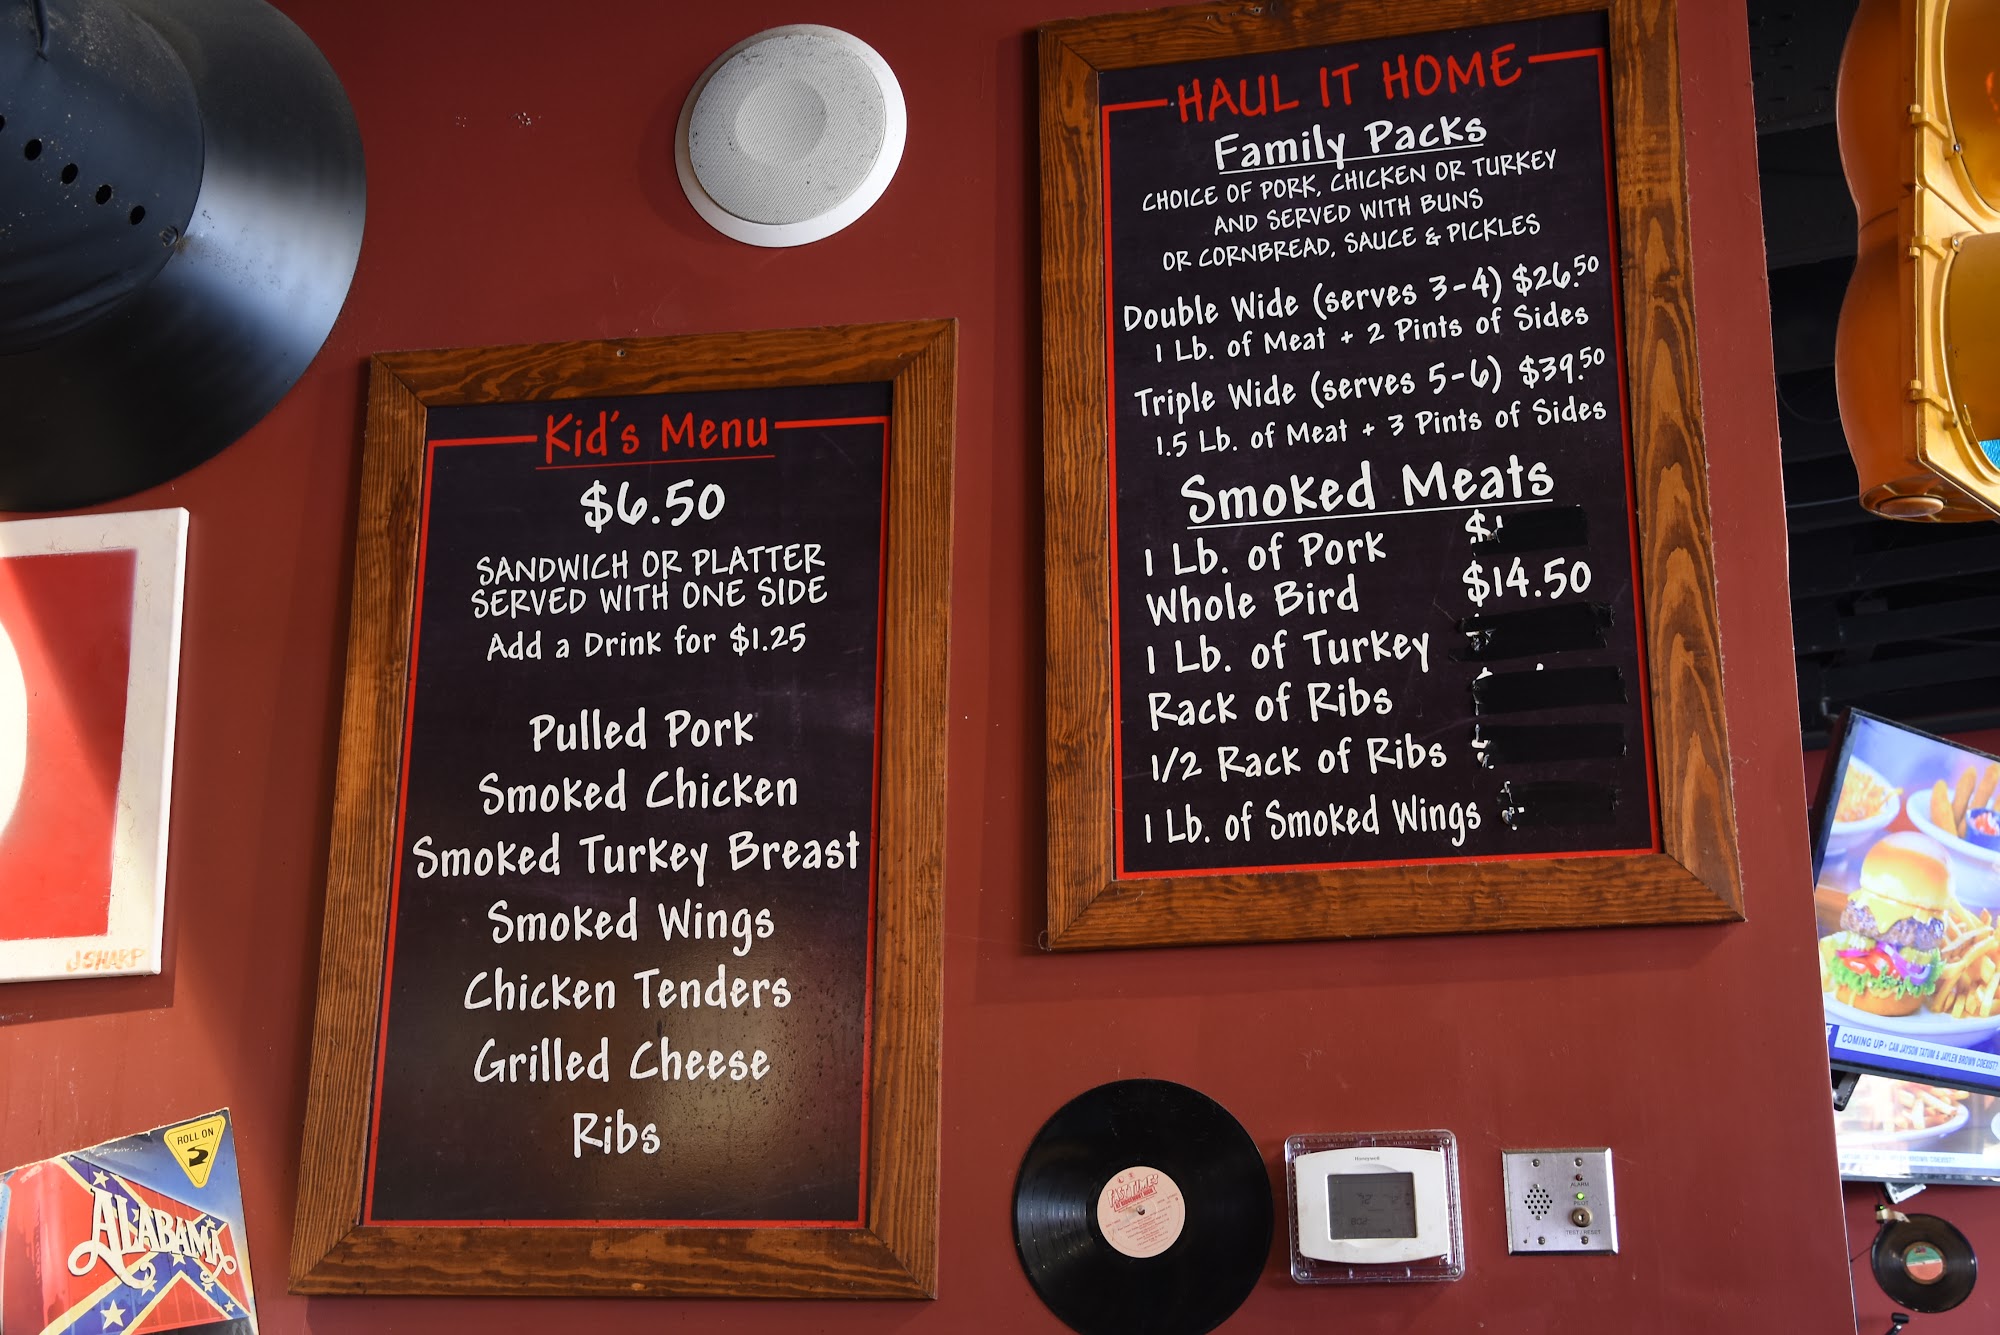 Kid's Menu
$6.50
SANDWICH OR PLATTER
SERVED WITH ONE SIDE
Add a Drink for $1.25
Pulled Pork
Smoked Chicken
Smoked Turkey Breast
Smoked Wings
Chicken Tenders
Grilled Cheese
Ribs
HAUL IT HOME
Family Packs
CHOICE OF PORK, CHICKEN OR TURKEY
AND SERVED WITH BUNS
OR CORNBREAD, SAUCE & PICKLES
Double Wide (serves 3-4) $26.50
1 Lb. of Meat + 2 Pints of Sides
Triple Wide (serves 5-6) $39.50
1.5 Lb. of Meat + 3 Pints of Sides
Smoked Meats
1 Lb. of Pork $
Whole Bird $14.50
1 Lb. of Turkey
Rack of Ribs
1/2 Rack of Ribs
1 Lb. of Smoked Wings
J SHARP
ROLL ON
ALABAMA
FAST TIMES
Honeywell
ALARM
TEST / RESET
COMING UP › CAN JAYSON TATUM & JAYLEN BROWN COEXIST?